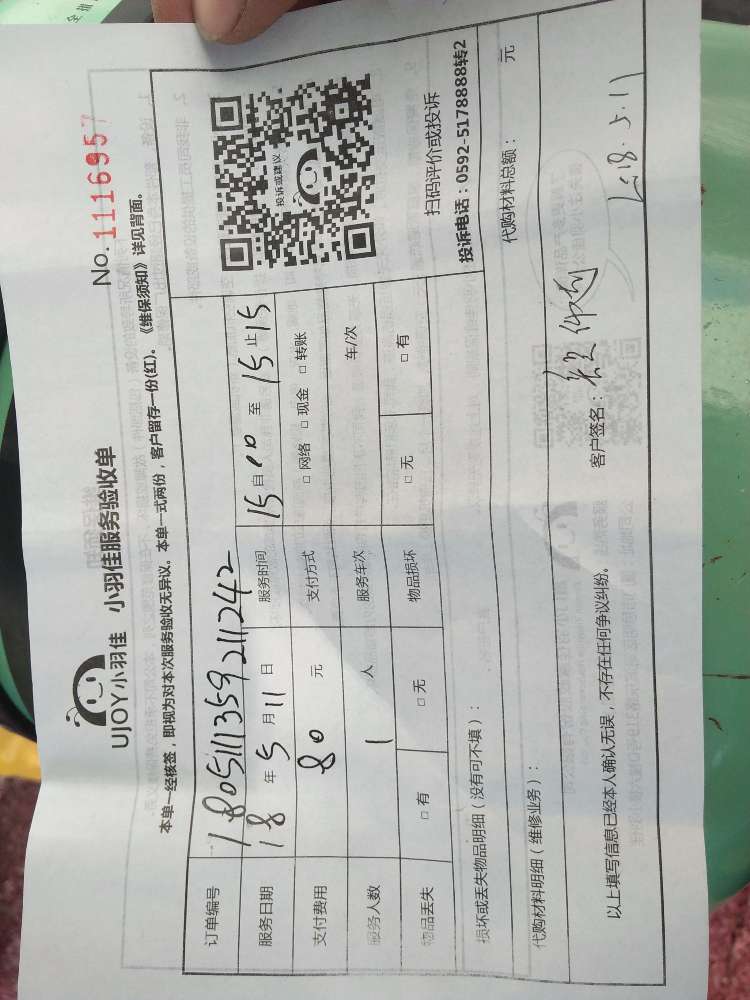 UJOY小羽佳 小羽佳服务验收单
No. 1116957
本单一经核签，即视为对本次服务验收无异议。本单一式两份，客户留存一份(红)。《维保须知》详见背面。
订单编号 180511135921124２
服务日期 18年5月11日 服务时间 15自00至15止15
支付费用 80元 支付方式 □网络 □现金 □转账
服务人数 1人 服务车次 车/次
物品丢失 □有 □无 物品损坏 □无 □有
投诉或建议
扫码评价或投诉
投诉电话：0592-5178888转2
损坏或丢失物品明细（没有可不填）：
代购材料明细（维修业务）： 代购材料总额： 元
以上填写信息已经本人确认无误，不存在任何争议纠纷。 客户签名： 2018.5.11